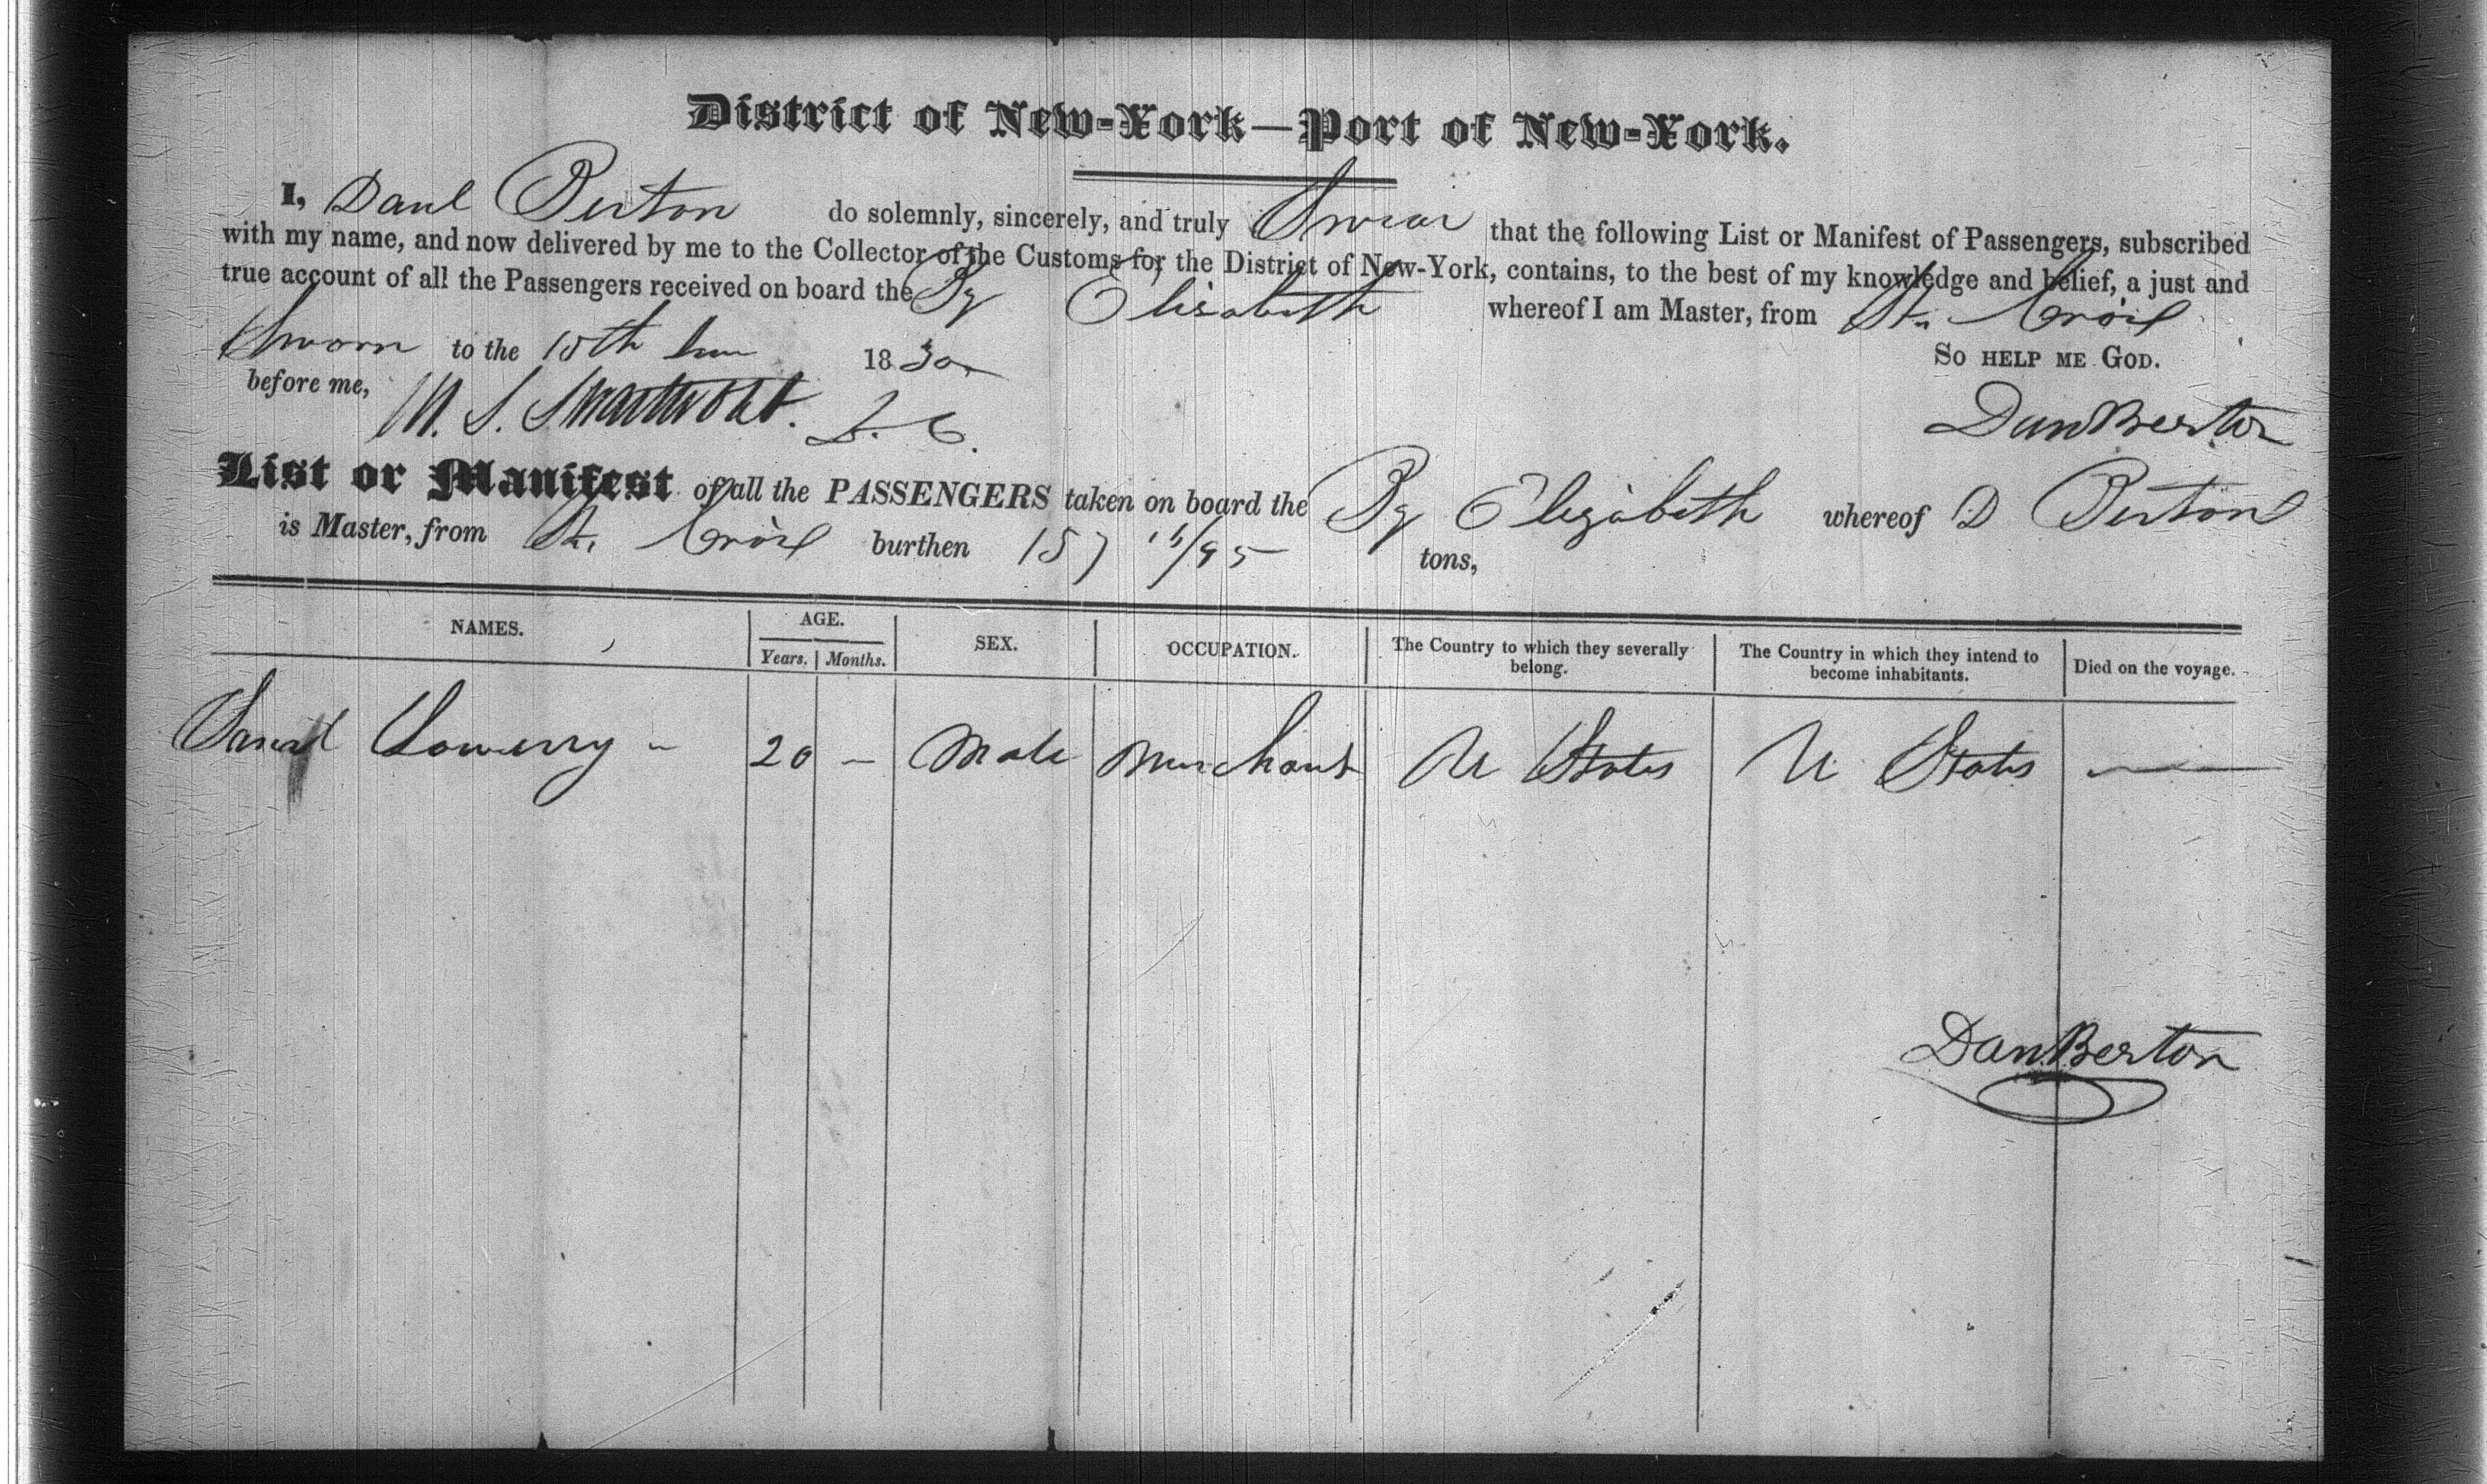 District of New-York—Port of New-York.
I, Danl Berton do solemnly, sincerely, and truly Swear that the following List or Manifest of Passengers, subscribed
with my name, and now delivered by me to the Collector of the Customs for the District of New-York, contains, to the best of my knowledge and belief, a just and
true account of all the Passengers received on board the Bg Elisabeth whereof I am Master, from St. Croix
Sworn to the 15th 1830 So help me God.
before me, M. S. Swartwout. D. C. Dan Berton
List or Manifest of all the PASSENGERS taken on board the Bg Elizabeth whereof D Berton
is Master, from St. Croix burthen 157 /95 tons,
NAMES. AGE. SEX. OCCUPATION. The Country to which they severally belong. The Country in which they intend to become inhabitants. Died on the voyage.
Years. Months.
Saml Lowerry – 20 – Male Merchant U States U States —
Dan Berton